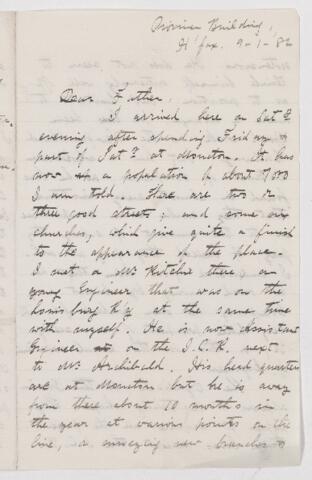 Province Building,
H'fax. 9-1-82
Dear Father,
I arrived here on Sat.
evening after spending Friday &
part of Sat. at Moncton. It has
now a population of about 7000
I am told. There are two or
three good streets; and some
churches, which give quite a finish
to the appearance of the place.
I met a Mr Ritchie there, a
young Engineer that was on the
Louisburg Ry at the same time
with myself. He is now Assistant
Engineer on the I.C.R. next
to Mr Archibald. His head quarters
are at Moncton but he is away
from there about 10 months in
the year at various points on the
line, surveying new branches &